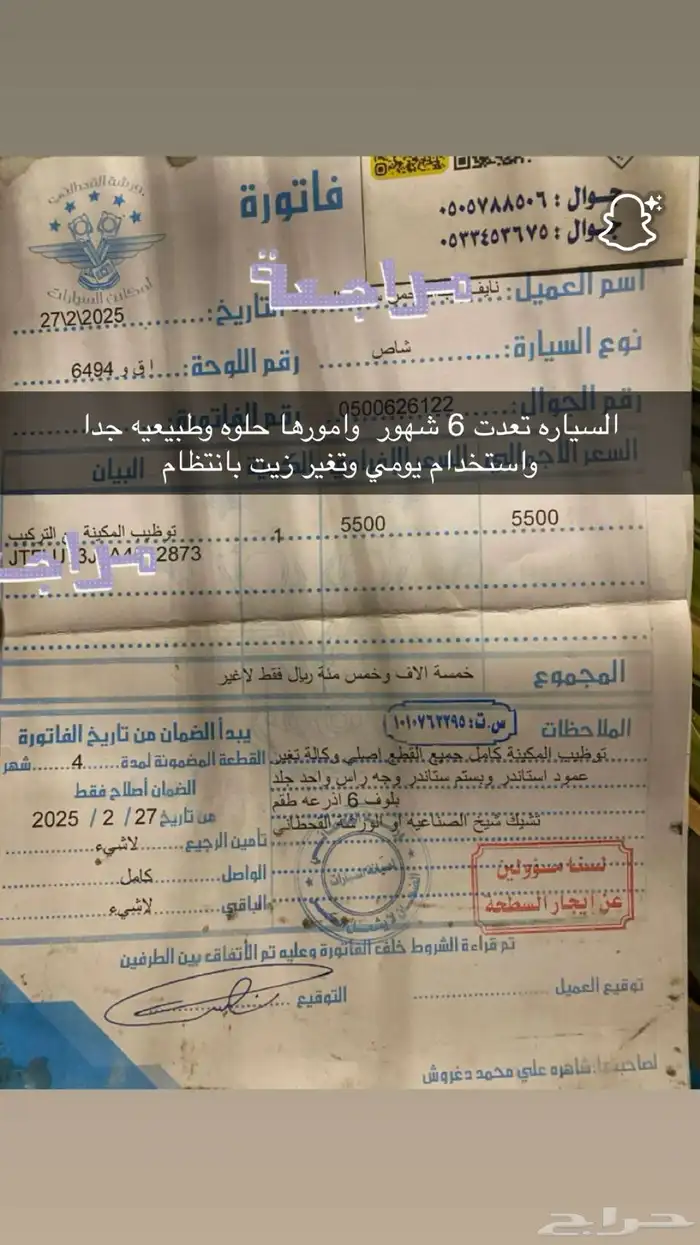 ورشة القحطاني
لمكائن السيارات
فاتورة
جوال : ٠٥٠٥٧٨٨٥٠٦
جوال : ٠٥٣٣٤٥٣٦٧٥
مراجعة
اسم العميل: نايف
التاريخ: 27\2\2025
نوع السيارة: شاص
رقم اللوحة: ا ق و 6494
رقم الجوال: 0500626122
رقم الفاتورة:
السياره تعدت 6 شهور وامورها حلوه وطبيعيه جدا
واستخدام يومي وتغير زيت بانتظام
البيان
توظيب المكينة التركيب 1 5500 5500
2873
المجموع خمسة الاف وخمس مئة ريال فقط لاغير
الملاحظات
س.ت: ١٠١٠٧٦٢٢٩٥
توظيب المكينة كامل جميع القطع اصلي وكالة تغير
عمود استاندر وبستم ستاندر وجه راس واحد جلد
بلوف 6 اذرعه طقم
تشيك شيخ الصناعيه او الورشة القحطاني
يبدأ الضمان من تاريخ الفاتورة
القطعة المضمونة لمدة 4 شهر
الضمان أصلاح فقط
من تاريخ 27 / 2 / 2025
تأمين الرجيع لاشيء
الواصل كامل
الباقي لاشيء
لسنا مسؤولين
عن ايجار السطحة
تم قراءة الشروط خلف الفاتورة وعليه تم الأتفاق بين الطرفين
توقيع العميل
التوقيع
لصاحبتها: شاهره علي محمد دغروش
حراج